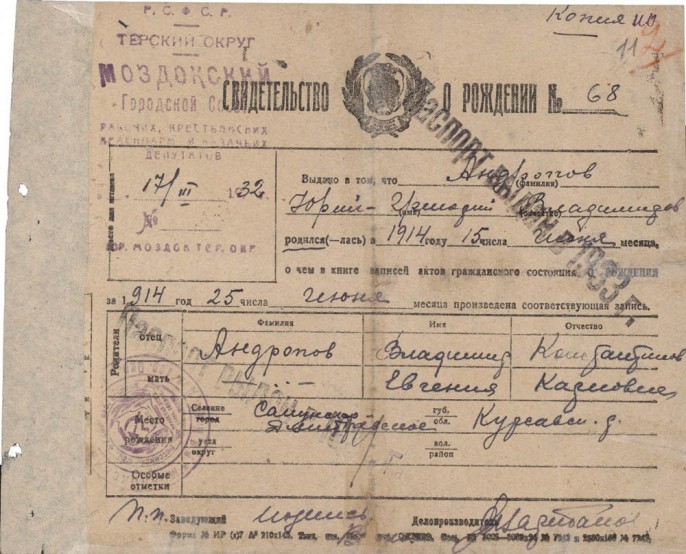 Р. С. Ф. С. Р.
ТЕРСКИЙ ОКРУГ
МОЗДОКСКИЙ
Городской Сов
РАБОЧИХ, КРЕСТЬЯНСКИХ
КРАСНОАРМ. И КАЗАЧЬИХ
ДЕПУТАТОВ
Копия
11
СВИДЕТЕЛЬСТВО О РОЖДЕНИИ № 68
17/III 1932
№
ГОР. МОЗДОК ТЕР. ОКР.
Выдано в том, что Андропов
(фамилия)
Юрий- Владимиров
(имя) (отчество)
родился(—лась) в 1914 году 15 числа июня месяца,
о чем в книге записей актов гражданского состояния, о рождения
за 1914 год 25 числа июня месяца произведена соответствующая запись.
Паспорт выдан в 1933 г.
Родители
Фамилия Имя Отчество
отец Андропов Владимир Константинов
мать -"- Евгения Карловна
Паспорт выдан
Место рождения
Селение город губ. обл. Курсавск. р.
уезд округ вол. район
Особые отметки
п.п. Заведующий подпись Делопроизводитель
Форма № ИР (1)7 А⁵ 210х148. Тип.